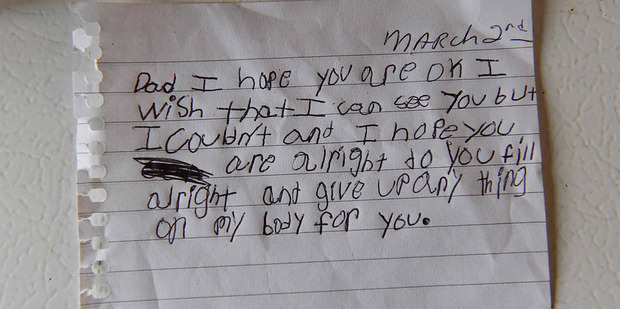 MARch 2nd
Dad I hope you are OK I
wish that I can see you but
I Couldn't and I hope you
are alright do you fill
alright and give up any thing
on my body for you.